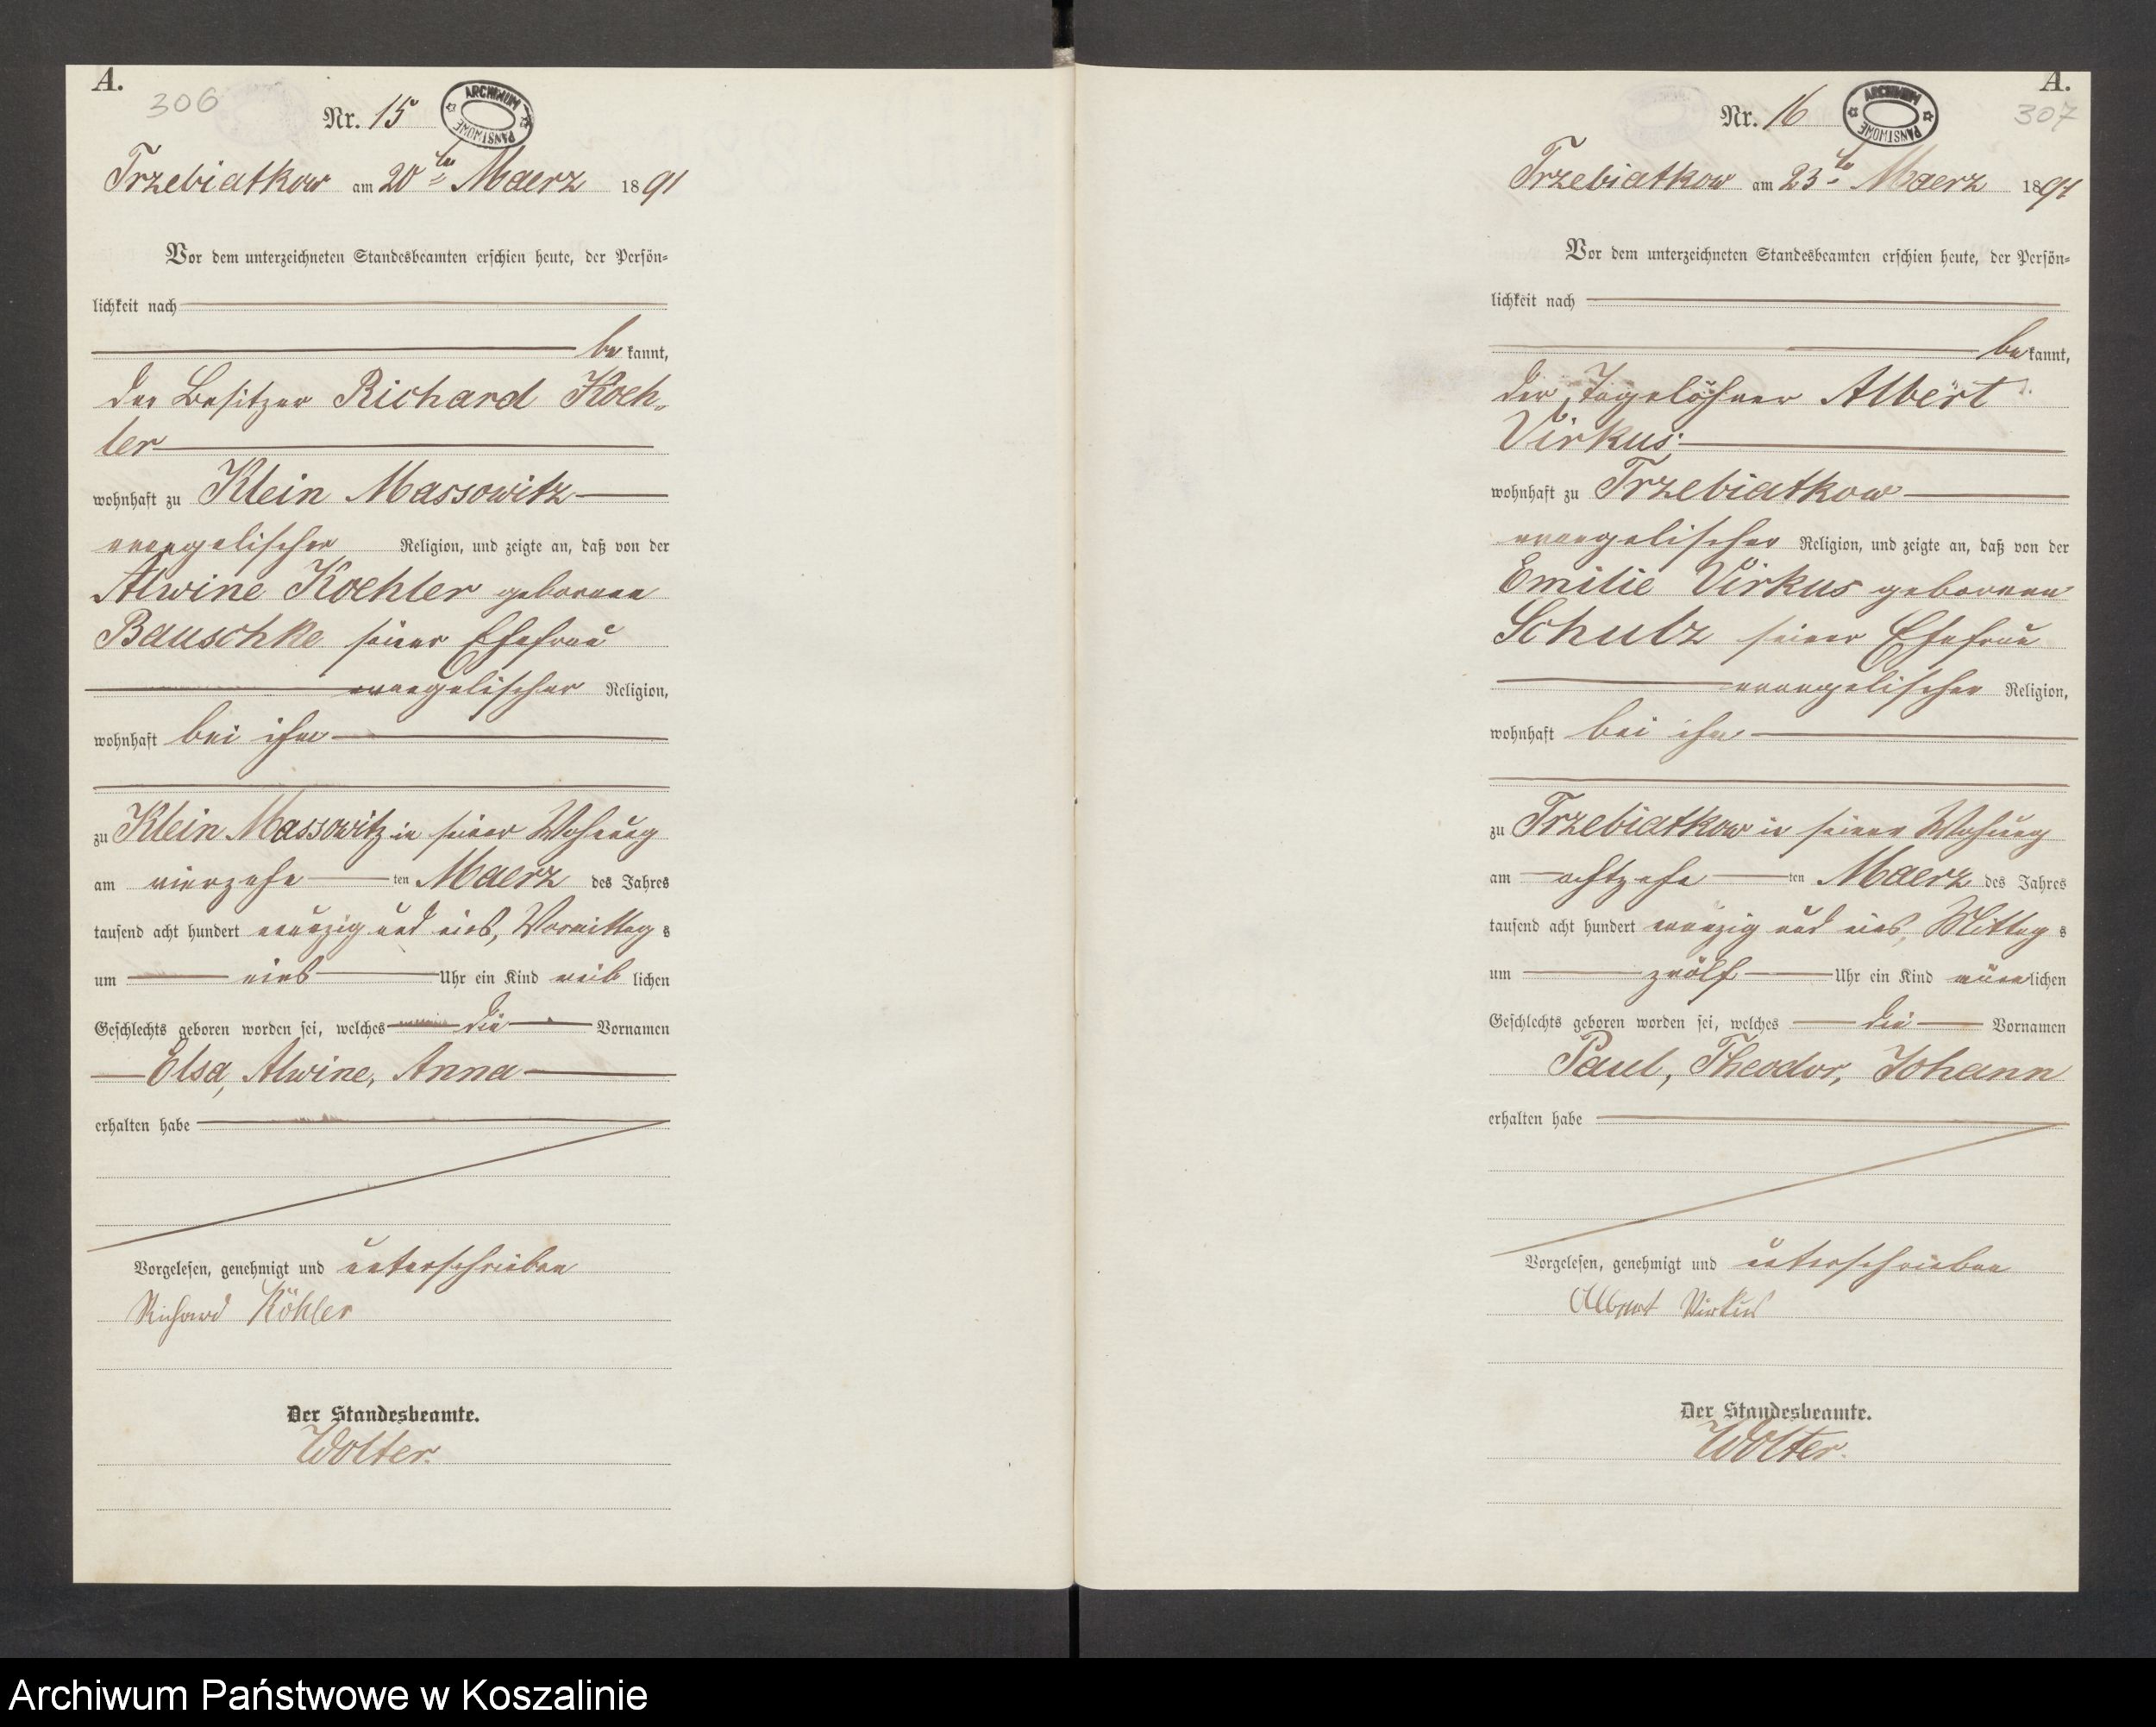 A.
306
Nr. 15
ARCHIWUM PAŃSTWOWE
Trzebiatkow am 20ten Maerz 1891
Vor dem unterzeichneten Standesbeamten erschien heute, der Persön-
lichkeit nach
be kannt,
der Besitzer Richard Koeh-
ler
wohnhaft zu Klein Massowitz
evangelischer Religion, und zeigte an, daß von der
Alwine Koehler geborenen
Bauschke seiner Ehefrau
evangelischer Religion,
wohnhaft bei ihm
zu Klein Massowitz in seiner Wohnung
am vierzehn ten Maerz des Jahres
tausend acht hundert neunzig und eins, Vormittag s
um eins Uhr ein Kind weib lichen
Geschlechts geboren worden sei, welches die Vornamen
Elsa, Alwine, Anna
erhalten habe
Vorgelesen, genehmigt und unterschrieben
Richard Köhler
Der Standesbeamte.
Wolter.
A.
307
Nr. 16
ARCHIWUM PAŃSTWOWE
Trzebiatkow am 23ten Maerz 1891
Vor dem unterzeichneten Standesbeamten erschien heute, der Persön-
lichkeit nach
be kannt,
der Tagelöhner Albert
Virkus
wohnhaft zu Trzebiatkow
evangelischer Religion, und zeigte an, daß von der
Emilie Virkus geborenen
Schulz seiner Ehefrau
evangelischer Religion,
wohnhaft bei ihm
zu Trzebiatkow in seiner Wohnung
am achtzehn ten Maerz des Jahres
tausend acht hundert neunzig und eins, Mittag s
um zwölf Uhr ein Kind männ lichen
Geschlechts geboren worden sei, welches die Vornamen
Paul, Theodor, Johann
erhalten habe
Vorgelesen, genehmigt und unterschrieben
Albert Virkus
Der Standesbeamte.
Wolter.
Archiwum Państwowe w Koszalinie